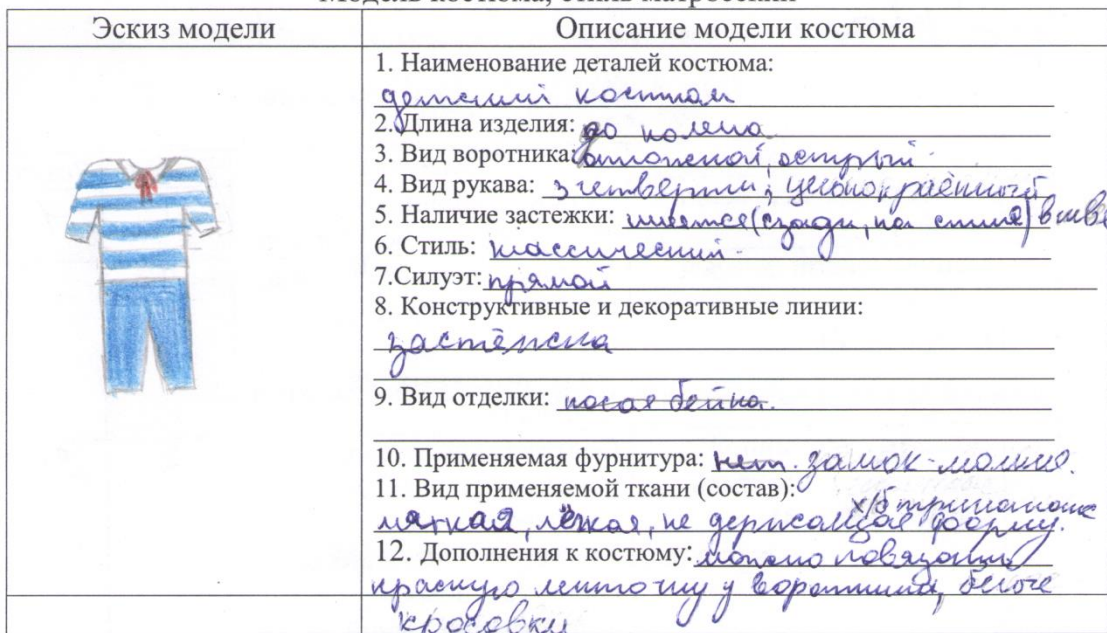 Модель костюма, стиль матросский
Эскиз модели
Описание модели костюма
1. Наименование деталей костюма:
детский костюм
2. Длина изделия: до колена
3. Вид воротника: отложной, острый.
4. Вид рукава: 3 четверти, цельнокраённый
5. Наличие застежки: имеется (сзади, на спине)
6. Стиль: классический.
7.Силуэт: прямой
8. Конструктивные и декоративные линии:
застёжка
9. Вид отделки: косая бейка.
10. Применяемая фурнитура: нет. замок-молния.
11. Вид применяемой ткани (состав): х/б
мягкая, лёгкая, не держащая форму.
12. Дополнения к костюму: можно повязать
красную ленточку у воротника, белые
кросовки